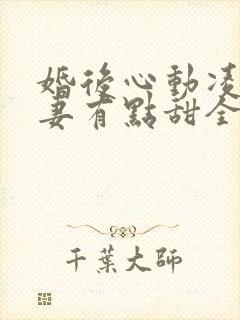 婚後心動凌
妻有點甜全
千葉大師